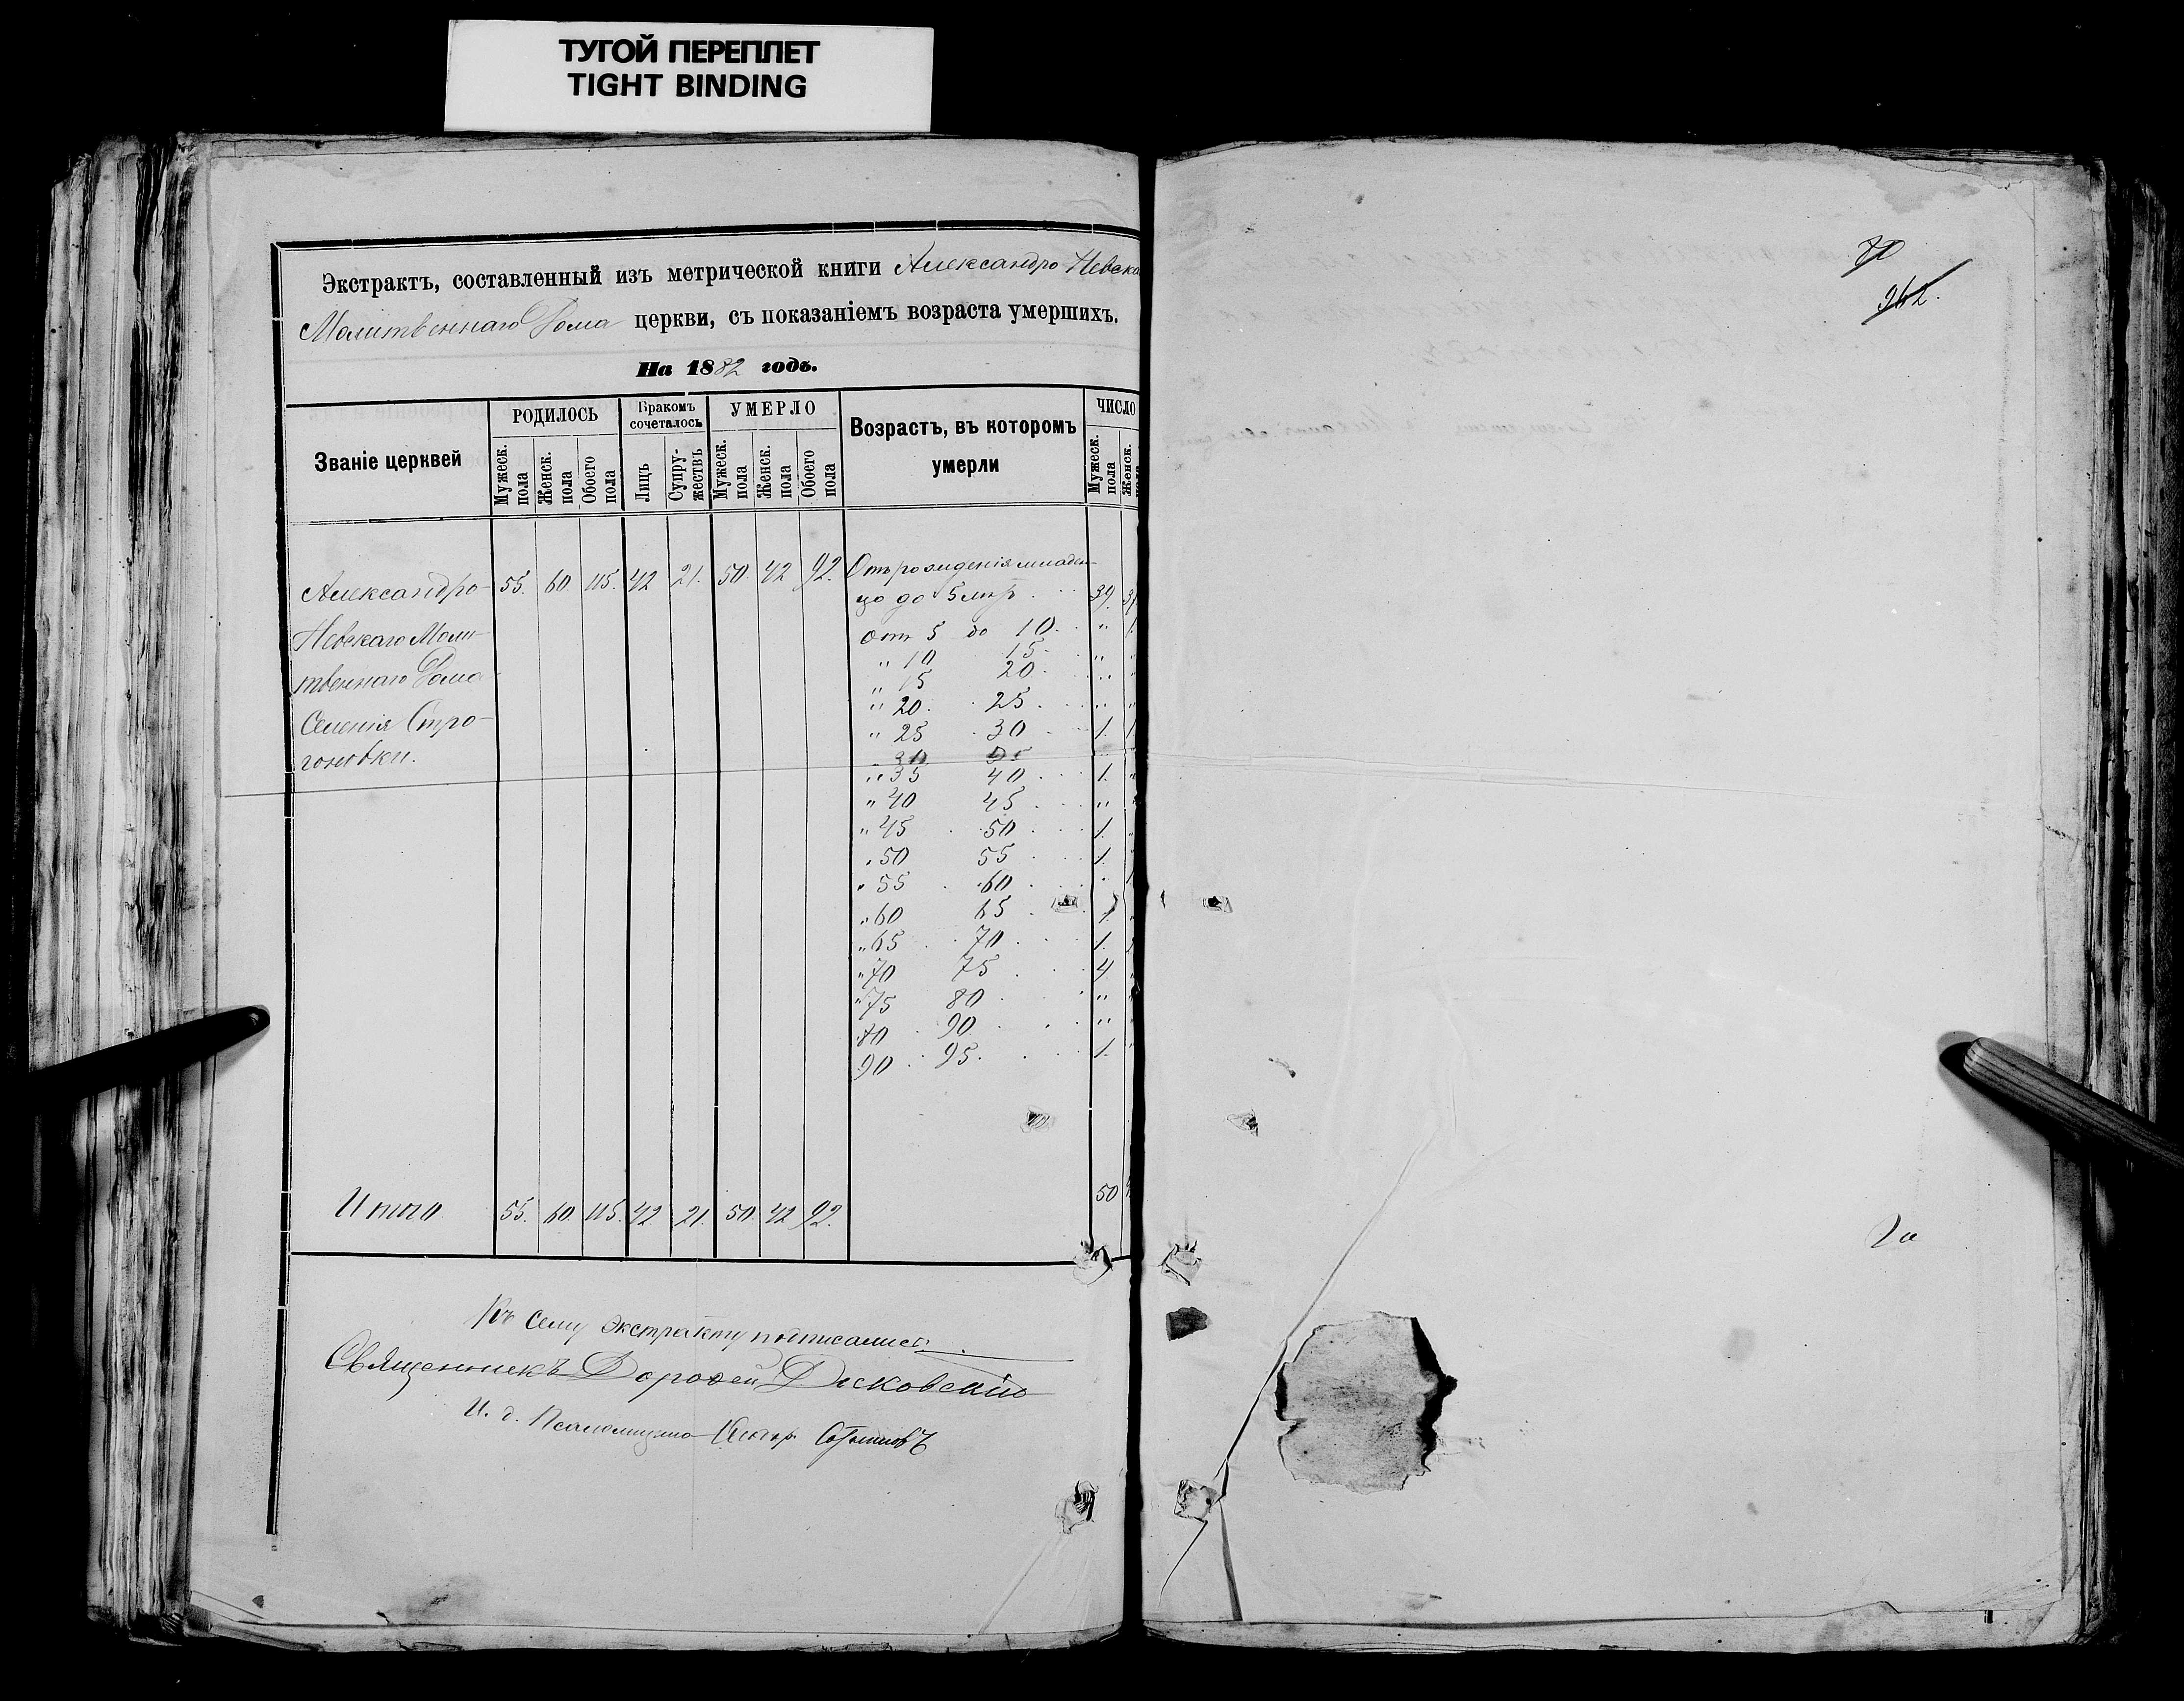 ТУГОЙ ПЕРЕПЛЕТ
TIGHT BINDING
Экстрактъ, составленный изъ метрической книги Александро Невска
Молитвеннаго Дома церкви, съ показаніемъ возраста умершихъ.
На 1882 годъ.
Званіе церквей
РОДИЛОСЬ
Бракомъ сочеталось
УМЕРЛО
Возрастъ, въ которомъ умерли
ЧИСЛО
Мужеск. пола
Женск. пола
Обоего пола
Лицъ
Супру-жествъ
Мужеск. пола
Женск. пола
Обоего пола
Мужеск. пола
Женск. пола
Александро- 55. 60. 115. 42 21. 50. 42 92. Отъ рожденія младен-
ца до 5 лѣтъ . . . 39.
Невскаго Моли- отъ 5 до 10. " 1.
" 10 15. "
твеннаго Дома " 15 20. "
Селенія Стро- " 20. 25. "
" 25 30 1. 1
гоновки. 30 35
" 35 40 1. "
" 40 45 "
" 45 50 1. "
" 50 55 1. "
" 55 60 " 1
" 60 65 1. "
" 65 70 1.
" 70 75 4 "
" 75 80 "
80 90 "
90 95. 1.
50
Итого 55. 60. 115. 42 21. 50. 42 92.
Къ сему экстракту подписались:
Священникъ Дорофей
И. д. Псаломщика
70
942.